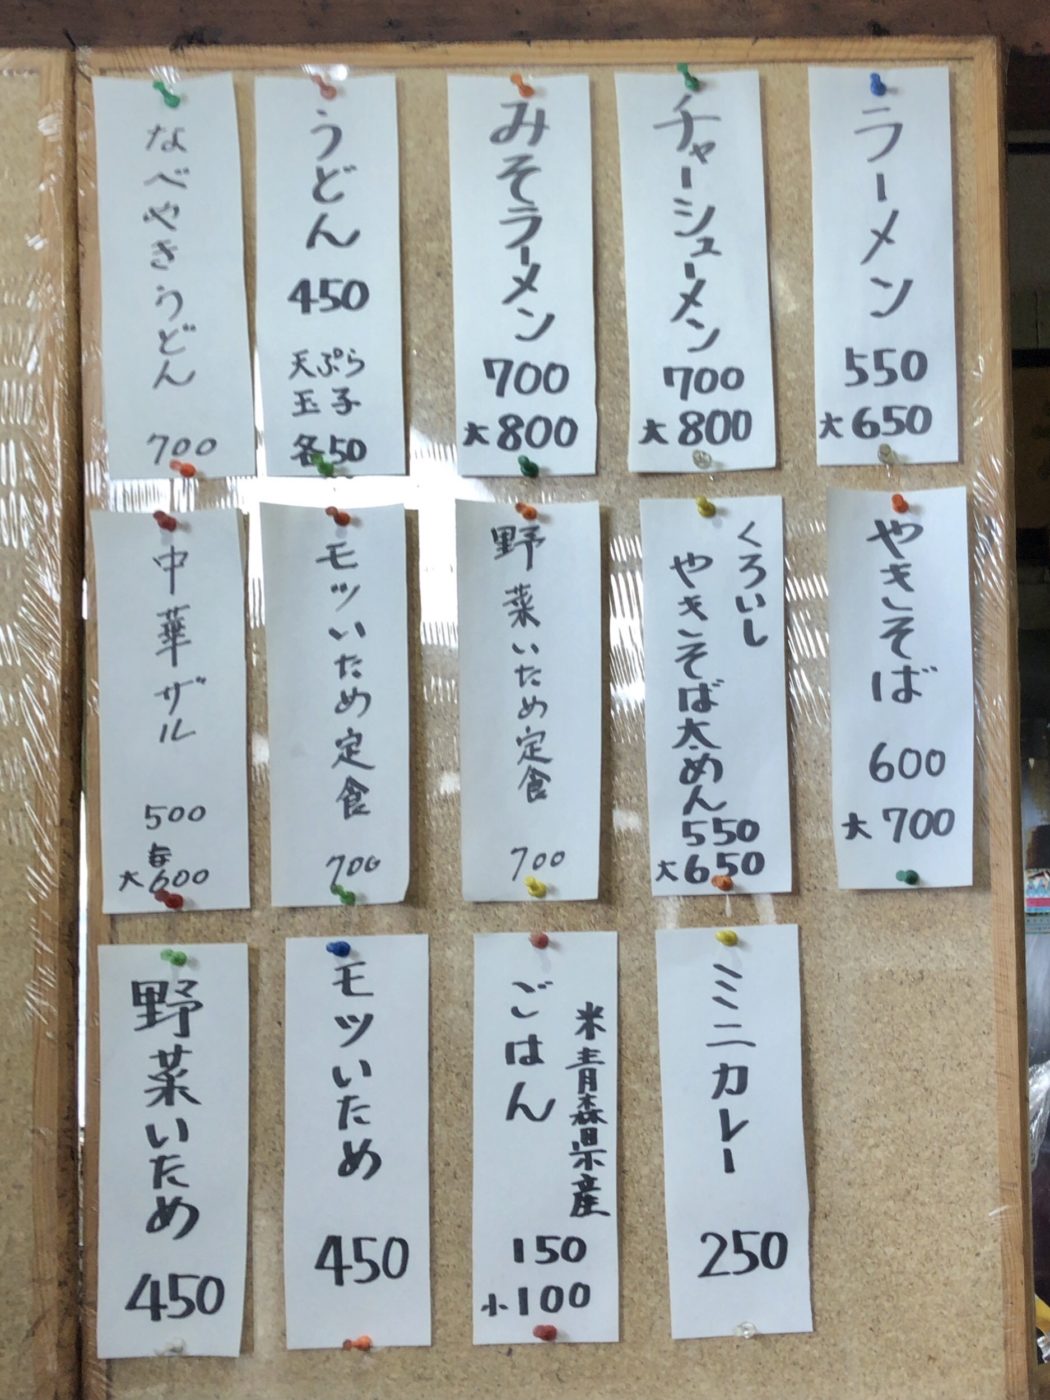 ラーメン
550
大650
チャーシューメン
700
大800
みそラーメン
700
大800
うどん
450
天ぷら
玉子
各50
なべやきうどん
700
やきそば
600
大700
くろいし
やきそば太めん
550
大650
野菜いため定食
700
モツいため定食
700
中華ザル
500
大600
ミニカレー
250
米青森県産
ごはん
150
小100
モツいため
450
野菜いため
450